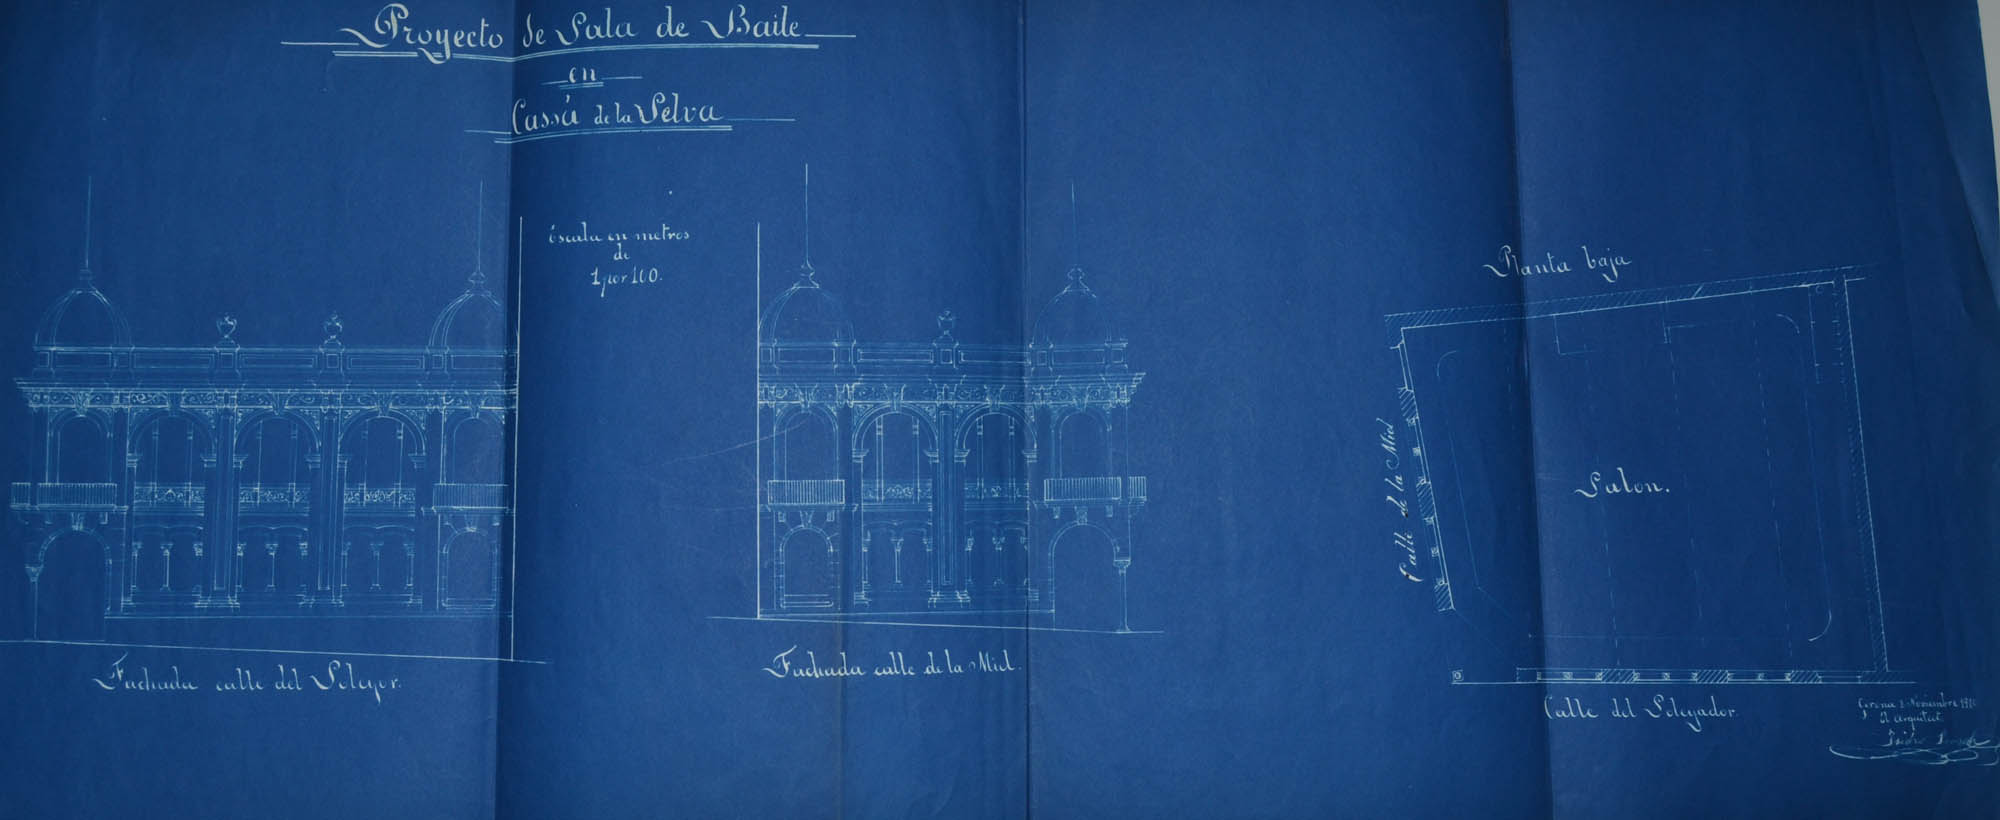 Proyecto de Sala de Baile
en
Cassá de la Selva
Escala en metros
de
1 por 100.
Fachada calle del Soleyor.
Fachada calle de la Miel.
Planta baja
Calle de la Miel
Salon.
Calle del Soleyador.
Gerona 2 Noviembre
El arquitect
Isidro Bosch